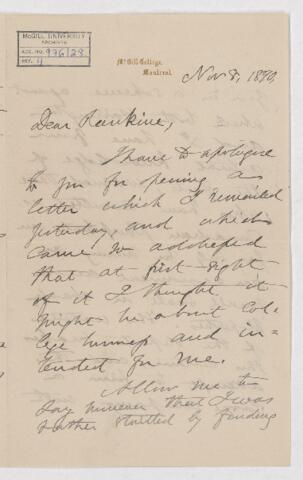 McGILL UNIVERSITY
ARCHIVES
ACC. NO. 976/28
REF. 4
McGill College,
Montreal.
Nov 8, 1890,
Dear Rankine,
I have to apologise
to you for opening a
letter which I received
yesterday, and which
came so addressed
that at first sight
of it I thought it
might be about col-
lege business and in-
tended for me.
Allow me to
say however that I was
rather startled by finding